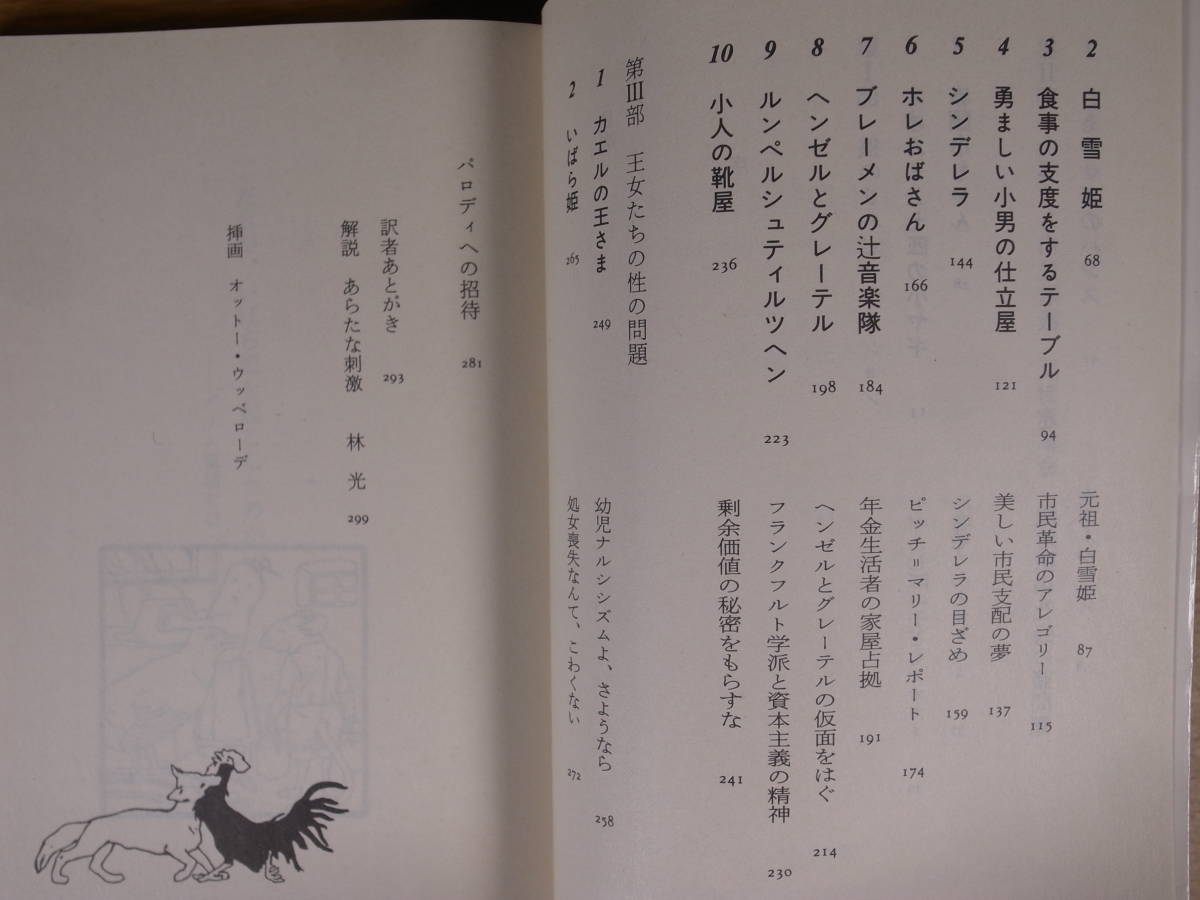 2 白雪姫 68
元祖・白雪姫 87
3 食事の支度をするテーブル 94
市民革命のアレゴリー 115
4 勇ましい小男の仕立屋 121
美しい市民支配の夢 137
5 シンデレラ 144
シンデレラの目ざめ 159
6 ホレおばさん 166
ピッチ＝マリー・レポート 174
7 ブレーメンの辻音楽隊 184
年金生活者の家屋占拠 191
8 ヘンゼルとグレーテル 198
ヘンゼルとグレーテルの仮面をはぐ 214
9 ルンペルシュティルツヘン 223
フランクフルト学派と資本主義の精神 230
10 小人の靴屋 236
剰余価値の秘密をもらすな 241
第III部 王女たちの性の問題
1 カエルの王さま 249
幼児ナルシシズムよ、さようなら 258
2 いばら姫 265
処女喪失なんて、こわくない 272
パロディへの招待 281
訳者あとがき 293
解説 あらたな刺激 林光 299
挿画 オットー・ウッベローデ